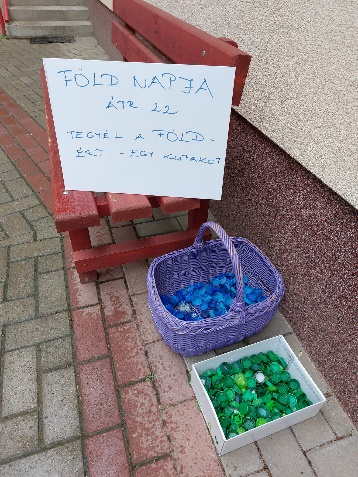 FÖLD NAPJA
ÁPR 22
TEGYÉL A FÖLD-
ÉRT - EGY KUPAKOT